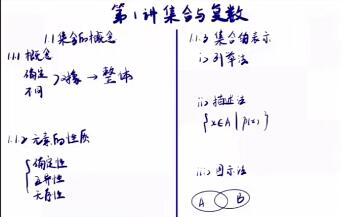 第1讲 集合与复数
1.1 集合的概念
1.1.1 概念
确定
不同
}对象 → 整体
1.1.2 元素的性质
{确定性
互异性
无序性
1.1.3 集合的表示
i) 列举法
ii) 描述法
{x∈A | p(x)}
iii) 图示法
A B